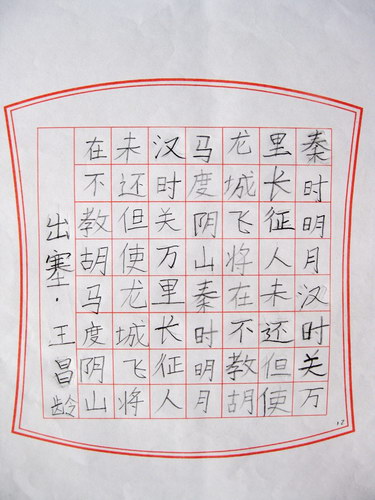 秦时明月汉时关万
里长征人未还但使
龙城飞将在不教胡
马度阴山秦时明月
汉时关万里长征人
未还但使龙城飞将
在不教胡马度阴山
出塞·王昌龄